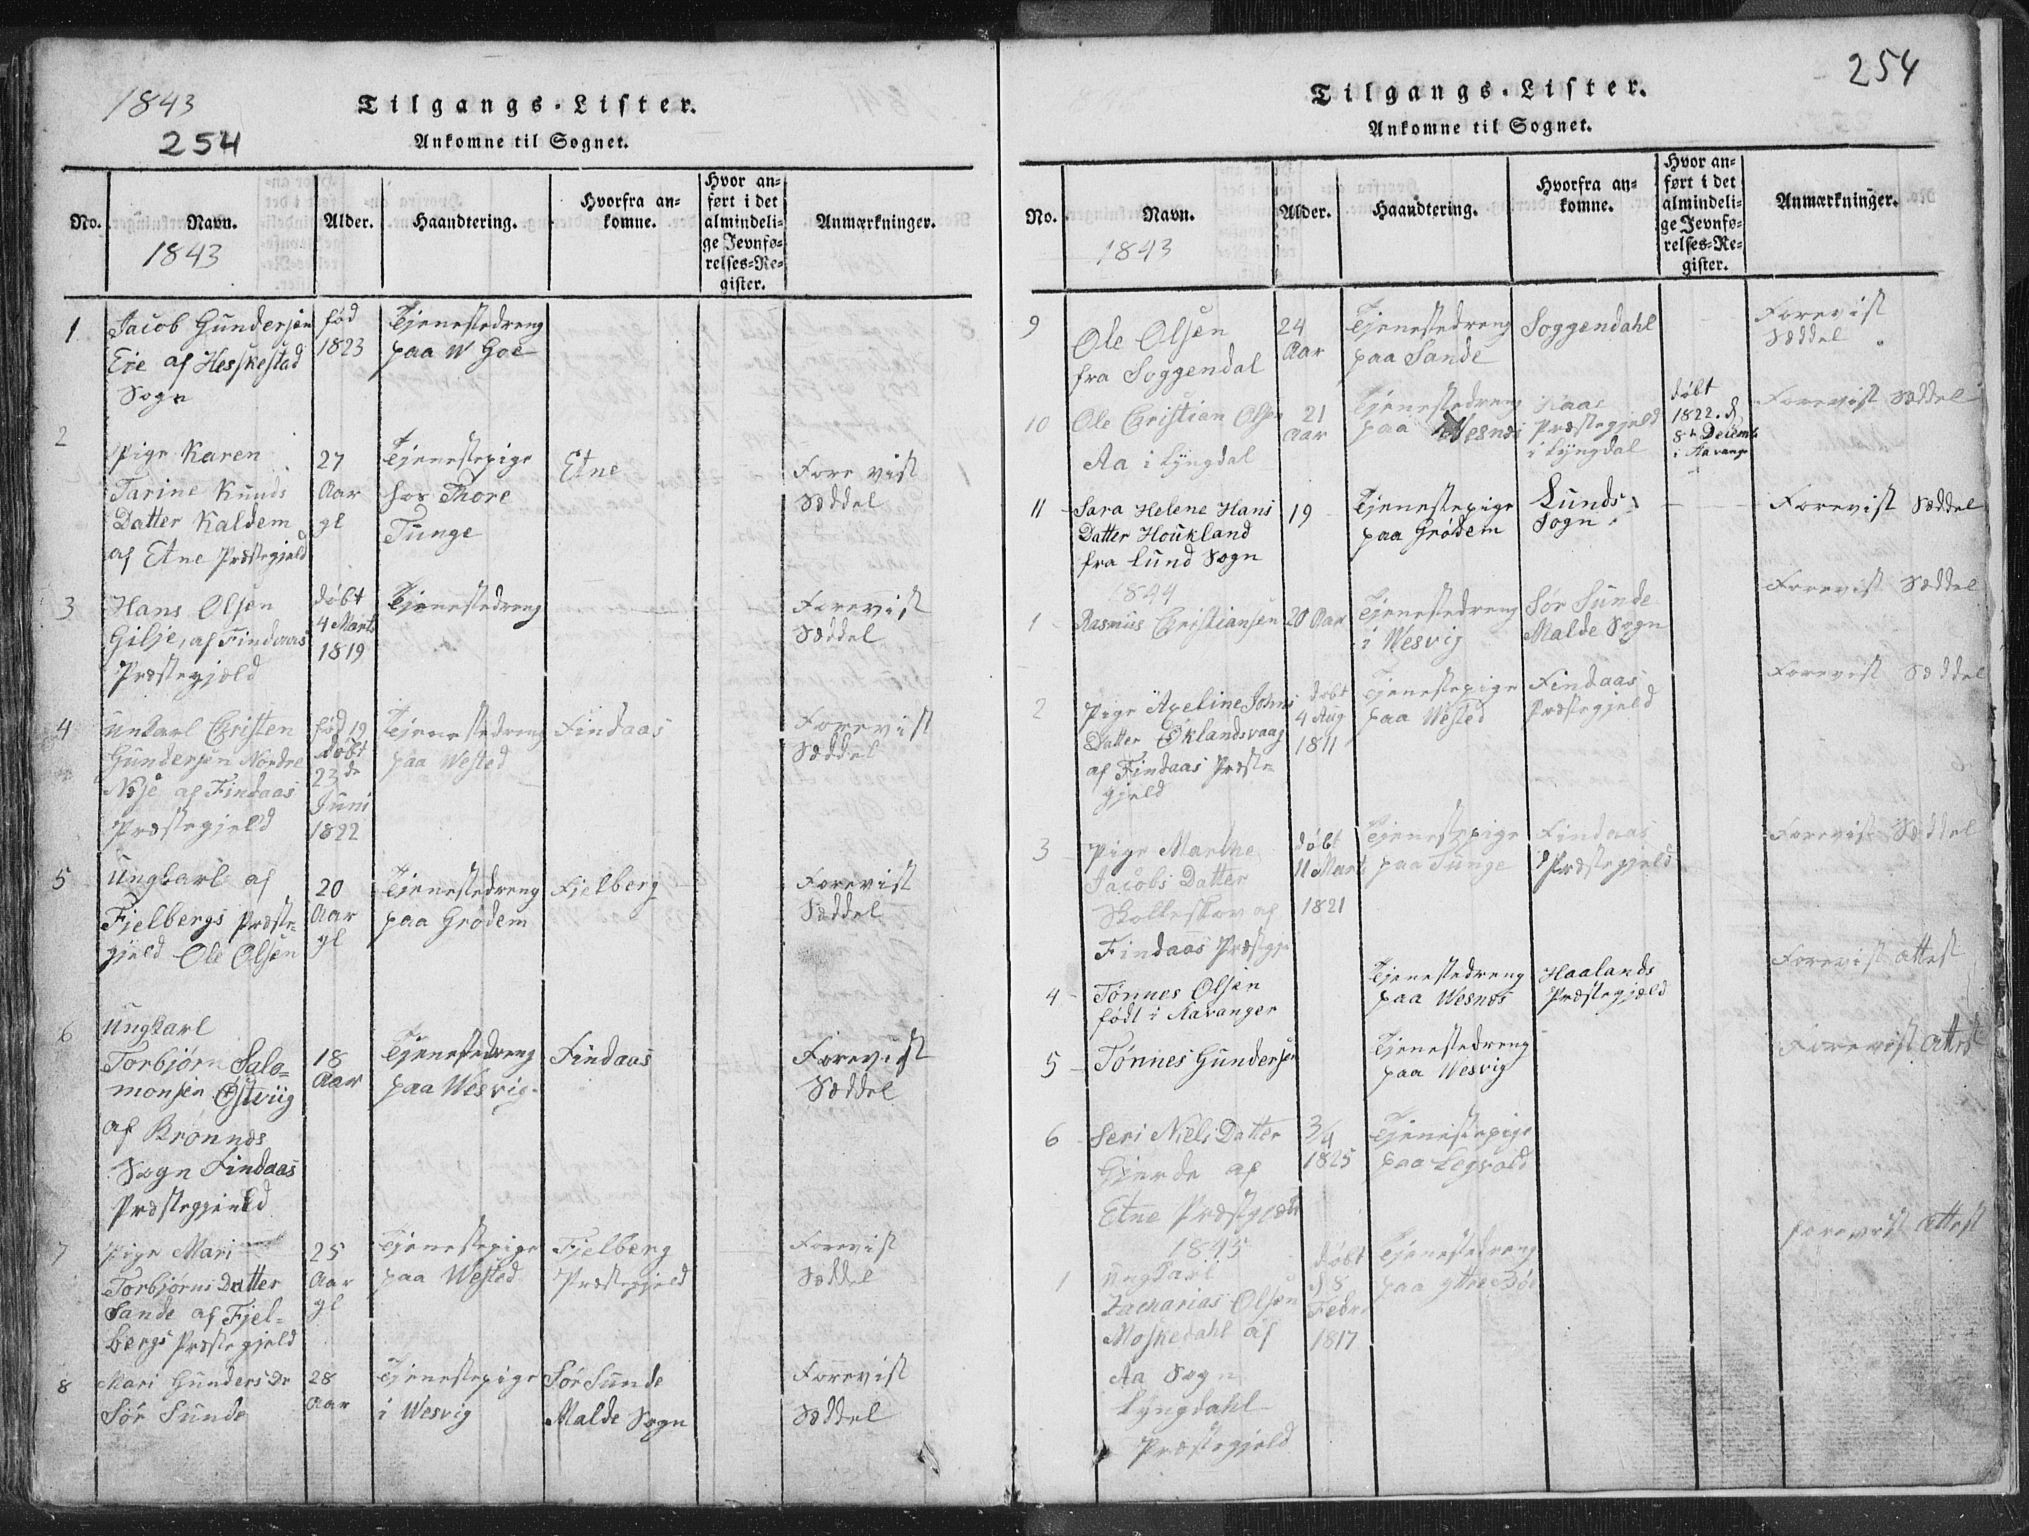 1843
254
Tilgangs-Lister.
Ankomne til Sognet.
No.
Navn.
Alder.
Haandtering.
Hvorfra an-
komne.
Hvor an-
ført i det
almindeli-
ge Jevnfø-
relses-Re-
gister.
Anmærkninger.
1843
1
Jacob Gundersen
Eie af Hesskestad
Sogn
fød
1823
Tjenestedreng
paa W Goe
2
Pige Karen
Tarine Knuds
Datter Kaldem
af Etne Præstegjeld
27
Aar
gl
Tjenestepige
hos Thore
Tunge
Etne
Forevist
Sæddel
3
Hans Olsen
Gilje, af Findaas
Præstegjæld
døbt
4 Marts
1819
Tjenestedreng
Forevist
Sæddel
4
Unkarl Christen
Gundersen Nordre
af Findaas
Præstegjeld
fød 19
døbt
23de
Juni
1822
Tjenestedreng
paa Wested
Findaas
Forevist
Sæddel
5
Ungkarl af
Fjelbergs Præste-
gjeld Ole Olsen
20
Aar
gl
Tjenestedreng
paa Grødem
Fjelberg
Forevist
Sæddel
6
Ungkarl
Torbjørn Salo-
monsen Østviig
af Brønnæs
Sogn Findaas
Præstegjeld
18
Aar
Tjenestedreng
paa Wesvig
Findaas
Forevist
Sæddel
7
Pige Mari
Torbjørns Datter
Sande af Fjel-
bergs Præstegjeld
25
Aar
gl
Tjenestepige
paa Wested
Fjelberg
Præstegjeld
Forevist
Sæddel
8
Mari Gunders Dr
Sør Sunde
28
Aar
Tjenestepige
i Wesvig
Sør Sunde
Malde Sogn
Forevist
Sæddel
254
Tilgangs-Lister.
Ankomne til Sognet.
No.
Navn.
Alder.
Haandtering.
Hvorfra an-
komne.
Hvor an-
ført i det
almindeli-
ge Jevnfø-
relses-Re-
gister.
Anmærkninger.
1843
9
Ole Olsen
fra Soggendal
24
Aar
Tjenestedreng
paa Sande
Soggendahl
Forevist
Sæddel
10
Ole Christian Olsen
Aa i Lyngdal
21
Aar
Tjenestedreng
paa Wesnes
Præstegjeld
i Lyngdal
døbt
1822. d
8de Decemb
i
Forevist Sæddel
11
Sara Helene Hans
Datter Houkland
fra Lund Sogn
19
Tjenestepige
paa Grødem
Lunds
Sogn
Forevist Sæddel
1844
1
Rasmus Christiansen
20 Aar
Tjenestedreng
i Wesvig
Sør Sunde
Malde Sogn
Forevist Sæddel
2
Pige Apeline Johns
Datter Øklandsvaag
af Findaas Præste-
gjeld
døbt
4 Aug
1811
Tjenestepige
paa Wested
Findaas
Præstegjeld
Forevist Sæddel
3
Pige Marthe
Jacobs Datter
af
Findaas Præstegje
døbt
11 Mart
1821
Tjenestepige
paa Tunge
Findaas
Præstegjeld
Forevist Sæddel
4
Tønnes Olsen
født i Navanger
Tjenestedreng
paa Wesnæs
Haalands
Præstegjæld
Forevist attest
5
Tønnes Gundersen
Tjenestedreng
paa Wesvig
Forevist attest
6
Seri Niels Datter
Gjerde af
Etne Præstgjæld
3/4
1825
Tjenestepige
paa Legvold
1845
1
Ungkarl
Zacharias Olsen
Moskedahl af
Aa Sogn
Lyngdahl
Præstegjeld
døbt
d 8
Febr
1817
Tjenestedreng
paa ytre Bøe
forevist attest